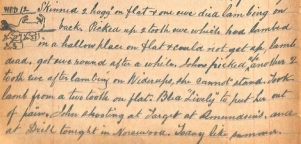 Wed 12. Skinned 2 hoggs on flat & one ewe dead lambing on
back. Picked up 2 tooth ewe which had lambed
in a hollow place on flat & could not get up, lamb
dead, got ewe round after a while. John picked another 2
tooth ewe after lambing on she cannot stand. Took
lamb from a two tooth on flat. "Lively" to put her out
of pain. John shooting at Target at Amundsen's, and
at Drill tonight in Norsewood. like summer.